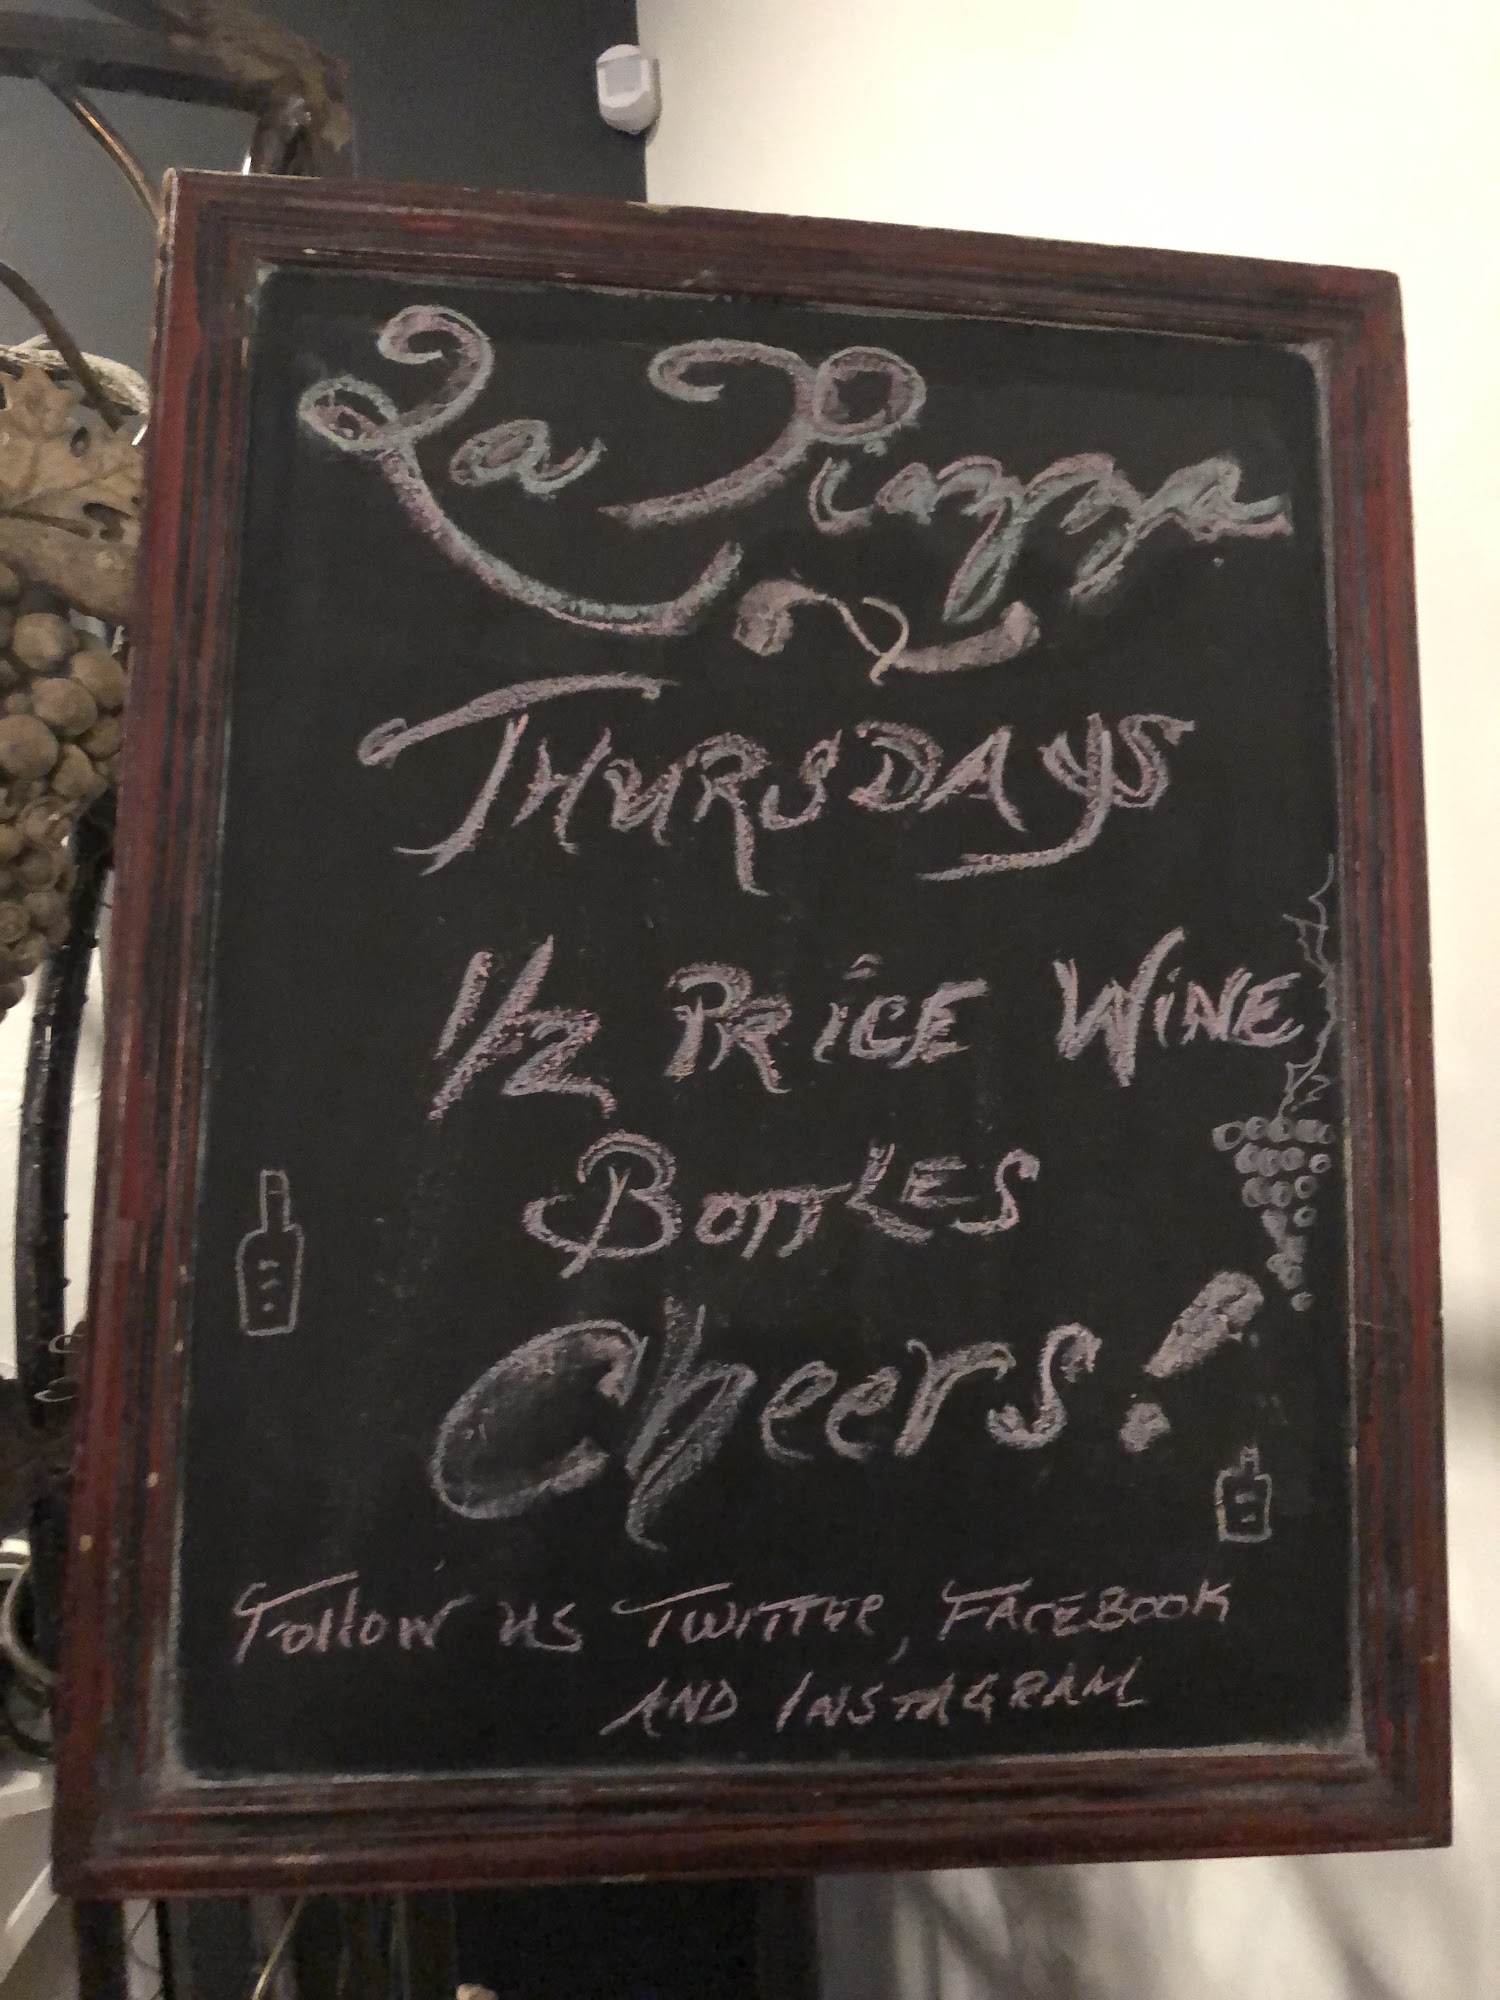 La Piazza
THURSDAYS
1/2 PRICE WINE
BOTTLES
Cheers!
Follow us TWITTER, FACEBOOK
AND INSTAGRAM